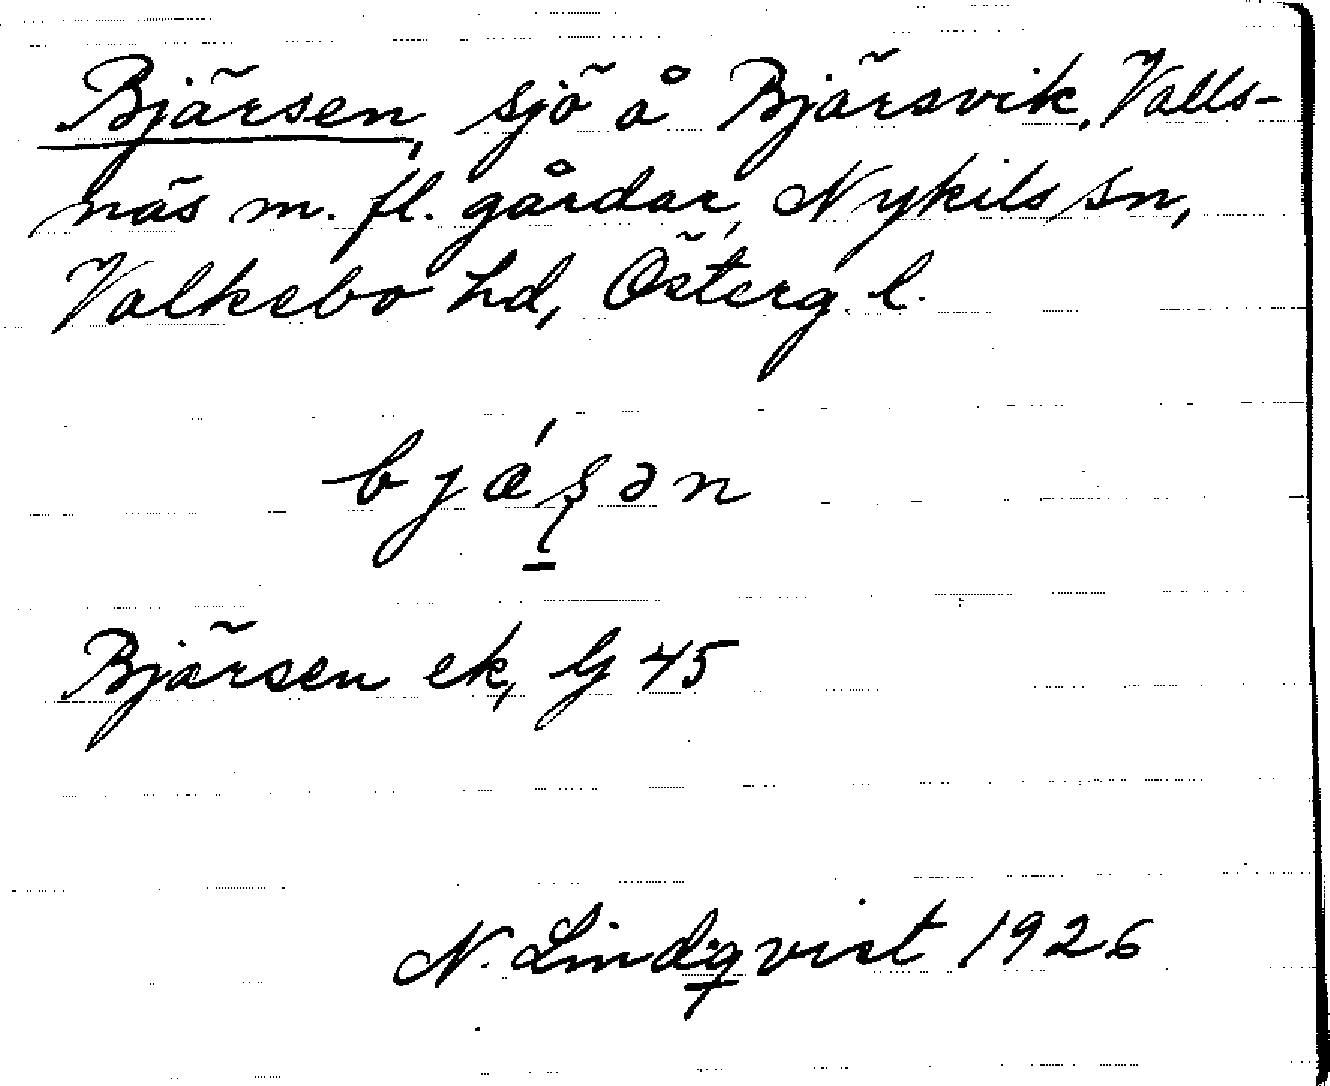 Bjärsen, sjö å Bjärsvik, Valls-
näs m. fl. gårdar, Nykils sn,
Valkebo hd, Österg. l.
bjǽʂən
Bjärsen ek, G 45
N. Lindqvist 1926